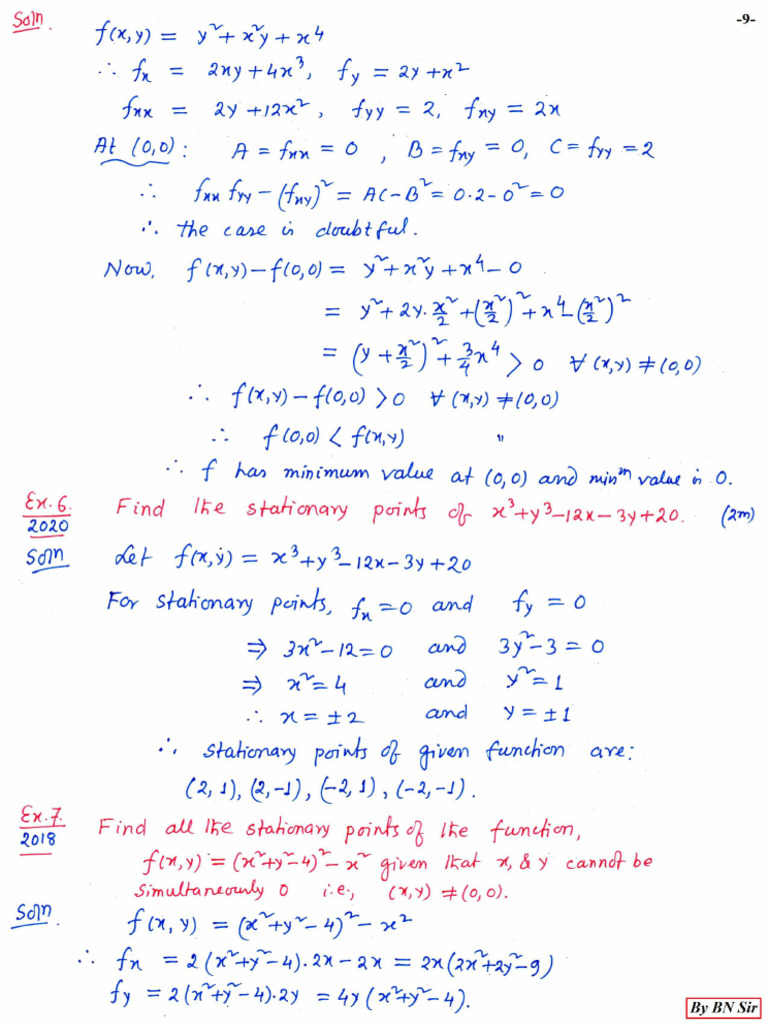 -9-
Soln.
f(x,y) = y² + x²y + x⁴
∴ fx = 2xy + 4x³, fy = 2y + x²
fxx = 2y + 12x², fyy = 2, fxy = 2x
At (0,0): A = fxx = 0, B = fxy = 0, C = fyy = 2
∴ fxx fyy – (fxy)² = AC – B² = 0·2 – 0² = 0
∴ the case is doubtful.
Now, f(x,y) – f(0,0) = y² + x²y + x⁴ – 0
= y² + 2y·x²/2 + (x²/2)² + x⁴ – (x²/2)²
= (y + x²/2)² + 3/4 x⁴ > 0 ∀ (x,y) ≠ (0,0)
∴ f(x,y) – f(0,0) > 0 ∀ (x,y) ≠ (0,0)
∴ f(0,0) < f(x,y) "
∴ f has minimum value at (0,0) and minᵐ value is 0.
Ex.6. Find the stationary points of x³+y³–12x–3y+20. (2m)
2020
Soln Let f(x,y) = x³+y³–12x–3y+20
For stationary points, fx = 0 and fy = 0
⇒ 3x²–12 = 0 and 3y²–3 = 0
⇒ x² = 4 and y² = 1
∴ x = ±2 and y = ±1
∴ stationary points of given function are:
(2,1), (2,-1), (-2,1), (-2,-1).
Ex.7. Find all the stationary points of the function,
2018
f(x,y) = (x²+y²–4)² – x² given that x, & y cannot be
simultaneously 0 i.e., (x,y) ≠ (0,0).
Soln. f(x,y) = (x²+y²–4)² – x²
∴ fx = 2(x²+y²–4)·2x – 2x = 2x(2x²+2y²–9)
fy = 2(x²+y²–4)·2y = 4y(x²+y²–4).
By BN Sir